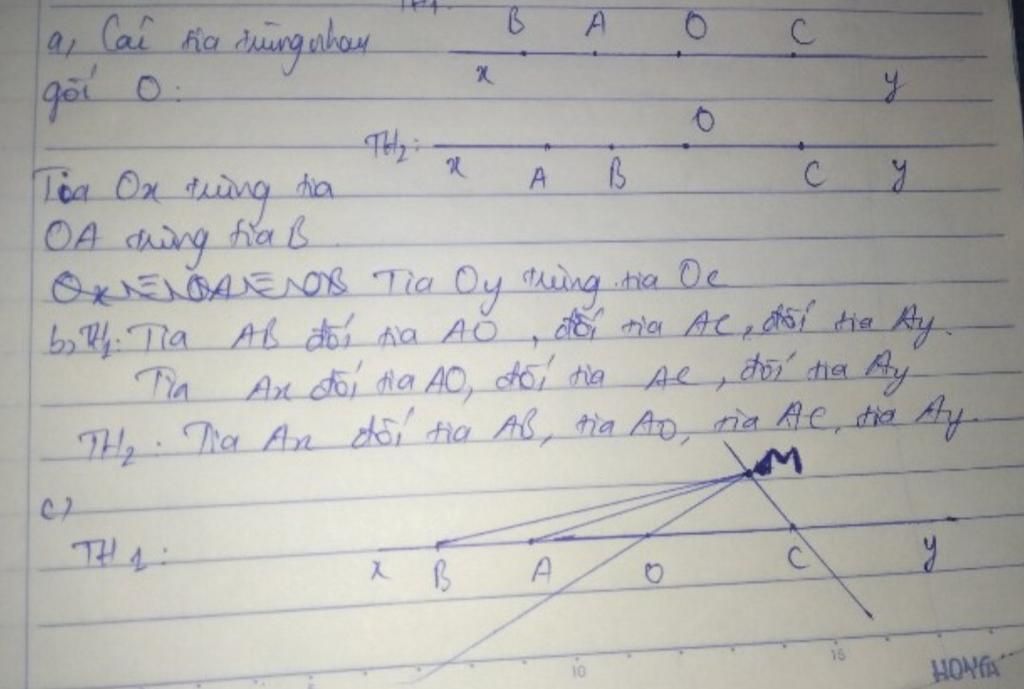 TH1:
a, Các tia trùng nhau
B A O C
x y
gốc O:
TH2: x A B O C y
Tia Ox trùng tia
OA trùng tia B
Ox ≡ OA ≡ OB Tia Oy trùng tia OC
b, TH1: Tia AB đối tia AO, đối tia AC, đối tia Ay.
Tia Ax đối tia AO, đối tia AC, đối tia Ay
TH2: Tia Ax đối tia AB, tia AO, tia AC, tia Ay.
M
c)
TH1:
x B A O C y
10 15
HONGHA